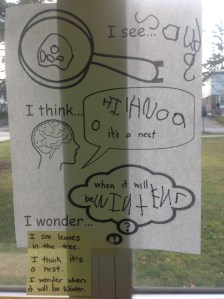 I see...
I think...
it's a nest
when it will
be WINTER
?
I wonder...
I see leaves
in the tree.
I think it's
a nest.
I wonder when
it will be Winter.